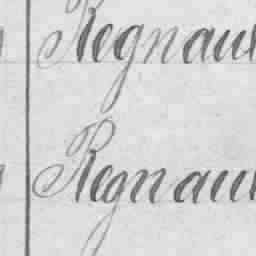 Regnau
Regnau